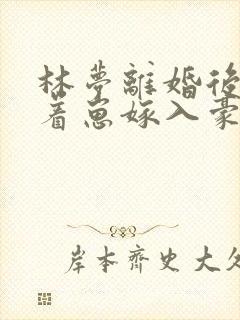 林夢離婚後
着崽嫁入豪
岸本齊史大久